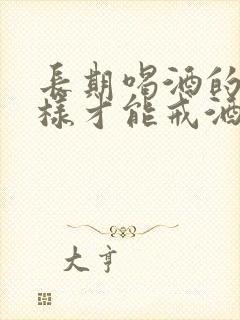 長期喝酒的
樣才能戒酒
大亨